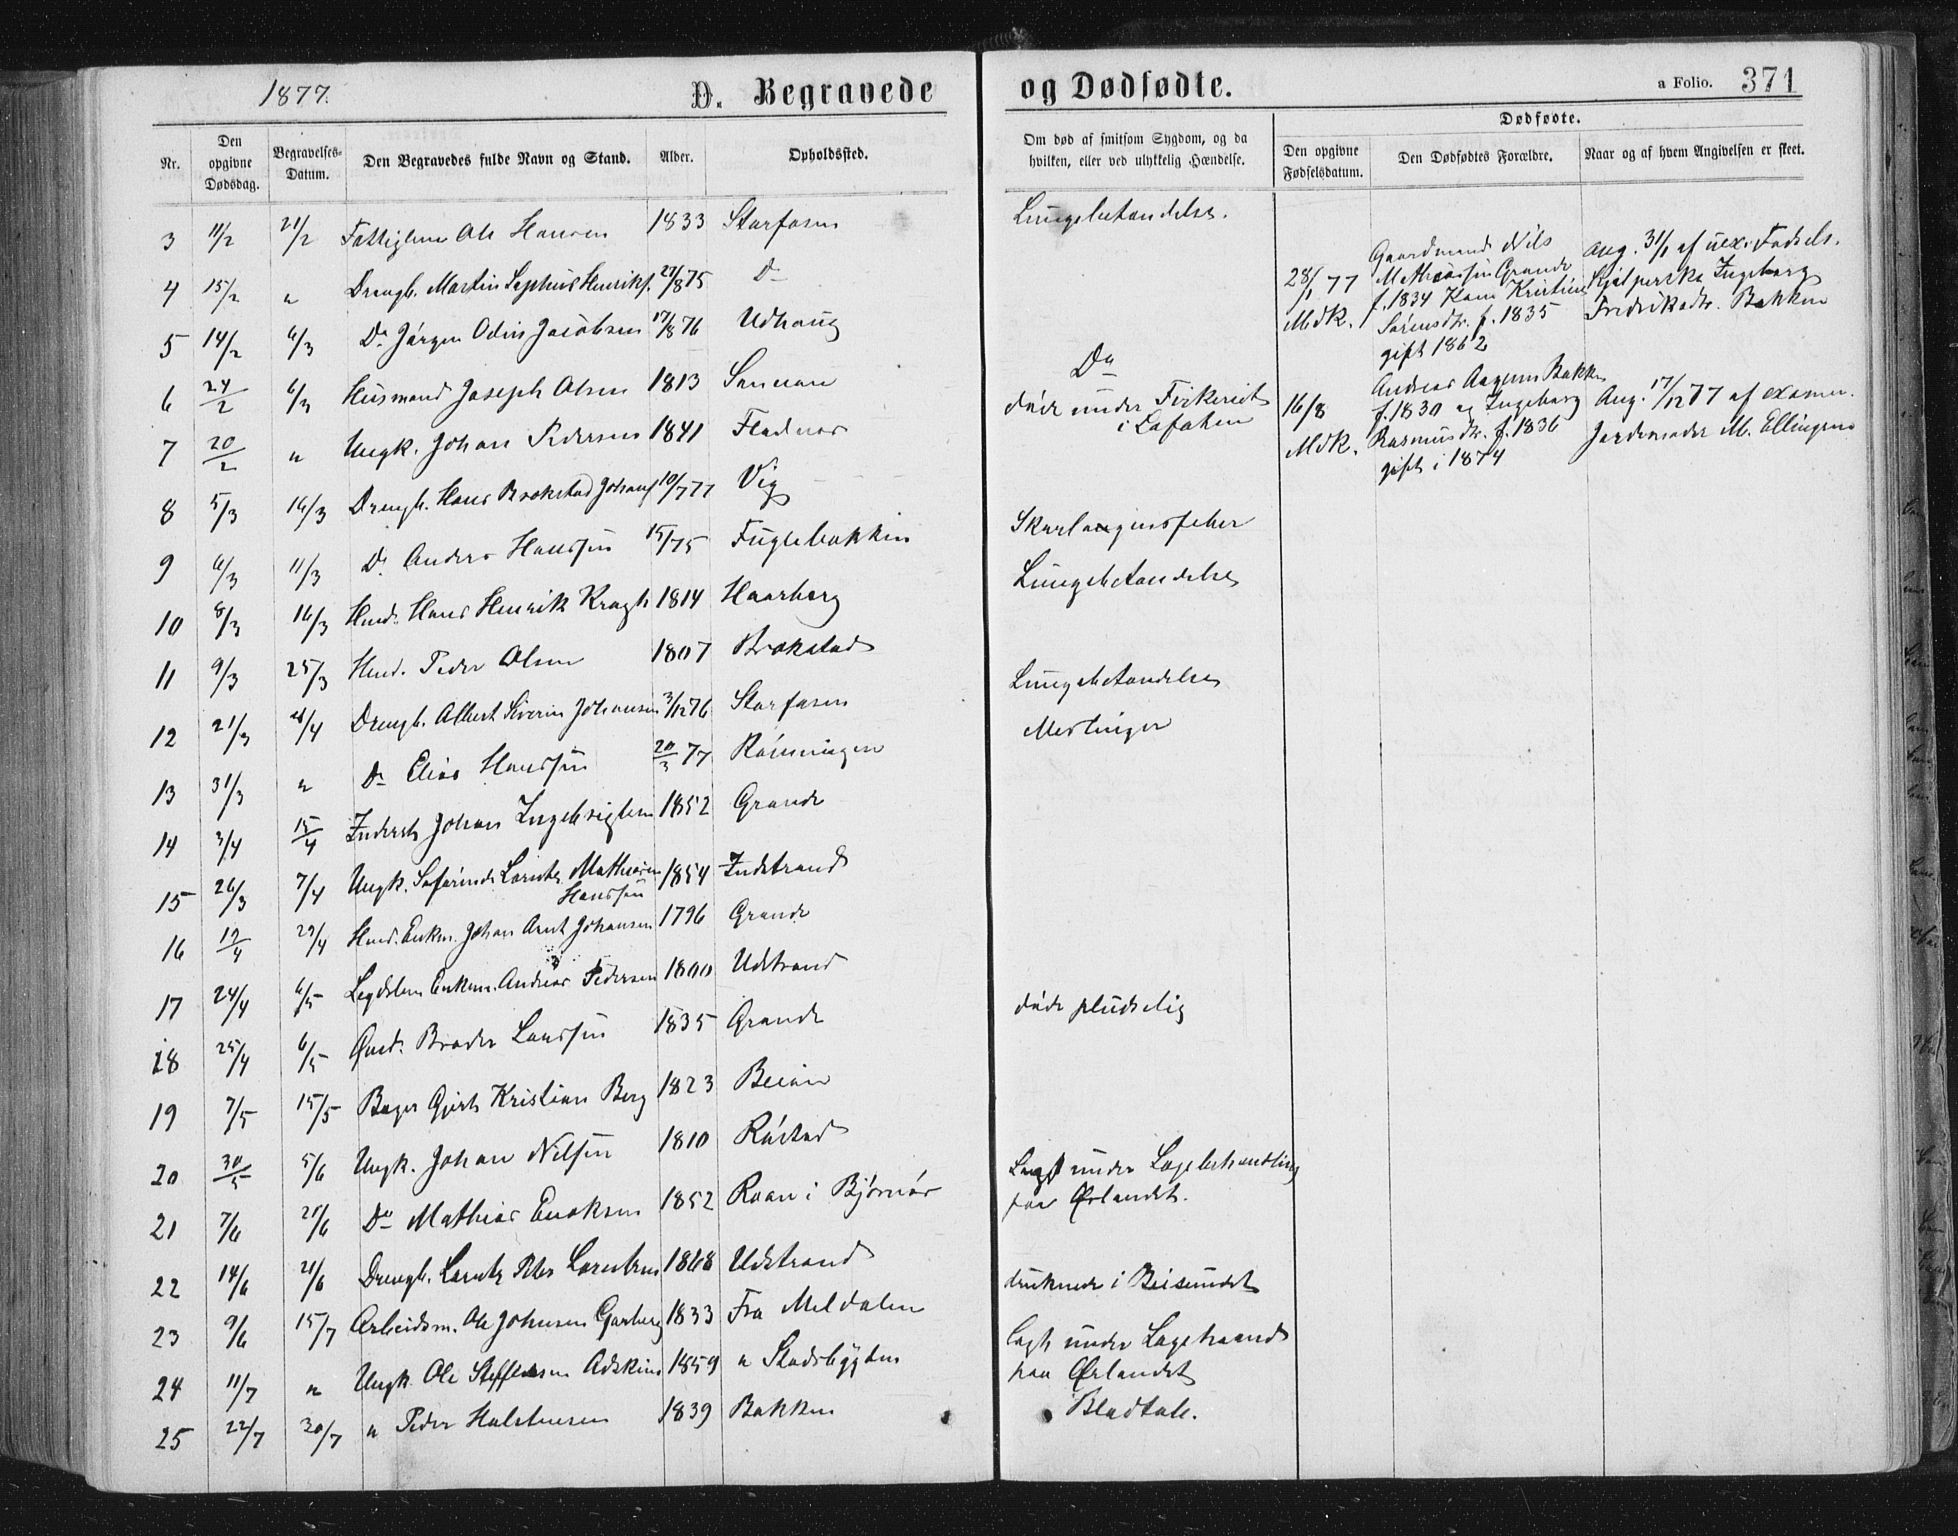 1877.
D. Begravede
og Dødfødte.
a Folio. 371
Nr.
Den opgivne Dødsdag.
Begravelses-Datum.
Den Begravedes fulde Navn og Stand.
Alder.
Opholdssted.
Om død af smitsom Sygdom, og da hvilken, eller ved ulykkelig Hændelse.
Dødfødte.
Den opgivne Fødselsdatum.
Den Dødfødtes Forældre.
Naar og af hvem Angivelsen er skeet.
3 11/2 21/2 Fattiglem Ole Hansen 1833 Storfosen Lungebetændelse.
4 15/2 " Drengb. Martin Sephus Henriks. 27/8 75 Do
5 14/2 6/3 Do Jørgen Odin Jacobsen 17/8 76 Udhaug
6 24/2 6/3 Husmand Joseph Olsen 1813 Do
7 20/2 " Ungk. Johan Pedersen 1841 Fladnes døde under Fiskeriet
i Lofoten
8 5/3 16/3 Drengb. Hans Brækstad Johans 10/7 77 Vig
9 6/3 11/3 Do Anders Hanssen 15/ 75 Fuglebakken Skarlagensfeber
10 8/3 16/3 Hmd. Hans Henrik Kragh 1814 Haarberg Lungebetændelse
11 9/3 25/3 Hmd. Peder Olsen 1807 Brækstad
12 21/3 /4 Drengb. Albert Severin Johansen 3/12 76 Storfosen Lungebetændelse
13 31/3 " Do Elias Hanssen 20/3 77 Rønningen Meslinger
14 3/4 15/4 Inderst Johan Ingebrigtsen 1852 Grande
15 26/3 7/4 Ungk. Laruts Mathiasen
Hanssen 1854 Indstrand
16 19/4 29/4 Hmd. Enkm. Johan Arnt Johansen 1796 Grande
17 24/4 6/5 Legdslem Enkem. Andreas Pedersen 1800 Udstrand
18 25/4 6/5 Broder Larssen 1835 Grande døde pludselig
19 7/5 15/5 Bager Gjert Kristian Berg 1823 Beian
20 30/5 5/6 Ungk. Johan Nilsen 1810 Røstad
21 7/6 21/6 Do Mathias Enoksen 1852 Roan i Bjørnør Lagt under Lægebehandling
paa Ørlandet.
22 14/6 21/6 Drengb. Lorents Peter Lorentsen 1868 Udstrand druknede i Beisundet
23 9/6 15/7 Arbeidsm. Ole Johnsen Garberg 1833 Fra Meldalen
24 11/7 " Ungk. Ole Steffensen Adskin 1859 " Stadsbygden lagt under Lægehaand
paa Ørlandet
25 22/7 30/7 " Peder Halstensen 1839 Bakken Blodtab.
28/1 77
Mdk.
Gaardmand Nils
Mathiassen Grande
f. 1834 Kone Kristine
Sørensdtr. f. 1835
gift 1862
Ang. 31/1 af uex. Fødsels-
hjælperske Ingeborg
Fredriksdtr. Bakken
16/8
Mdk.
Andreas Aagesen Bakken
f. 1830 og Ingeborg
Rasmusdtr. f. 1836
gift i 1874
Ang. 17/12 77 af examin.
Jordemoder M. Ellingsen